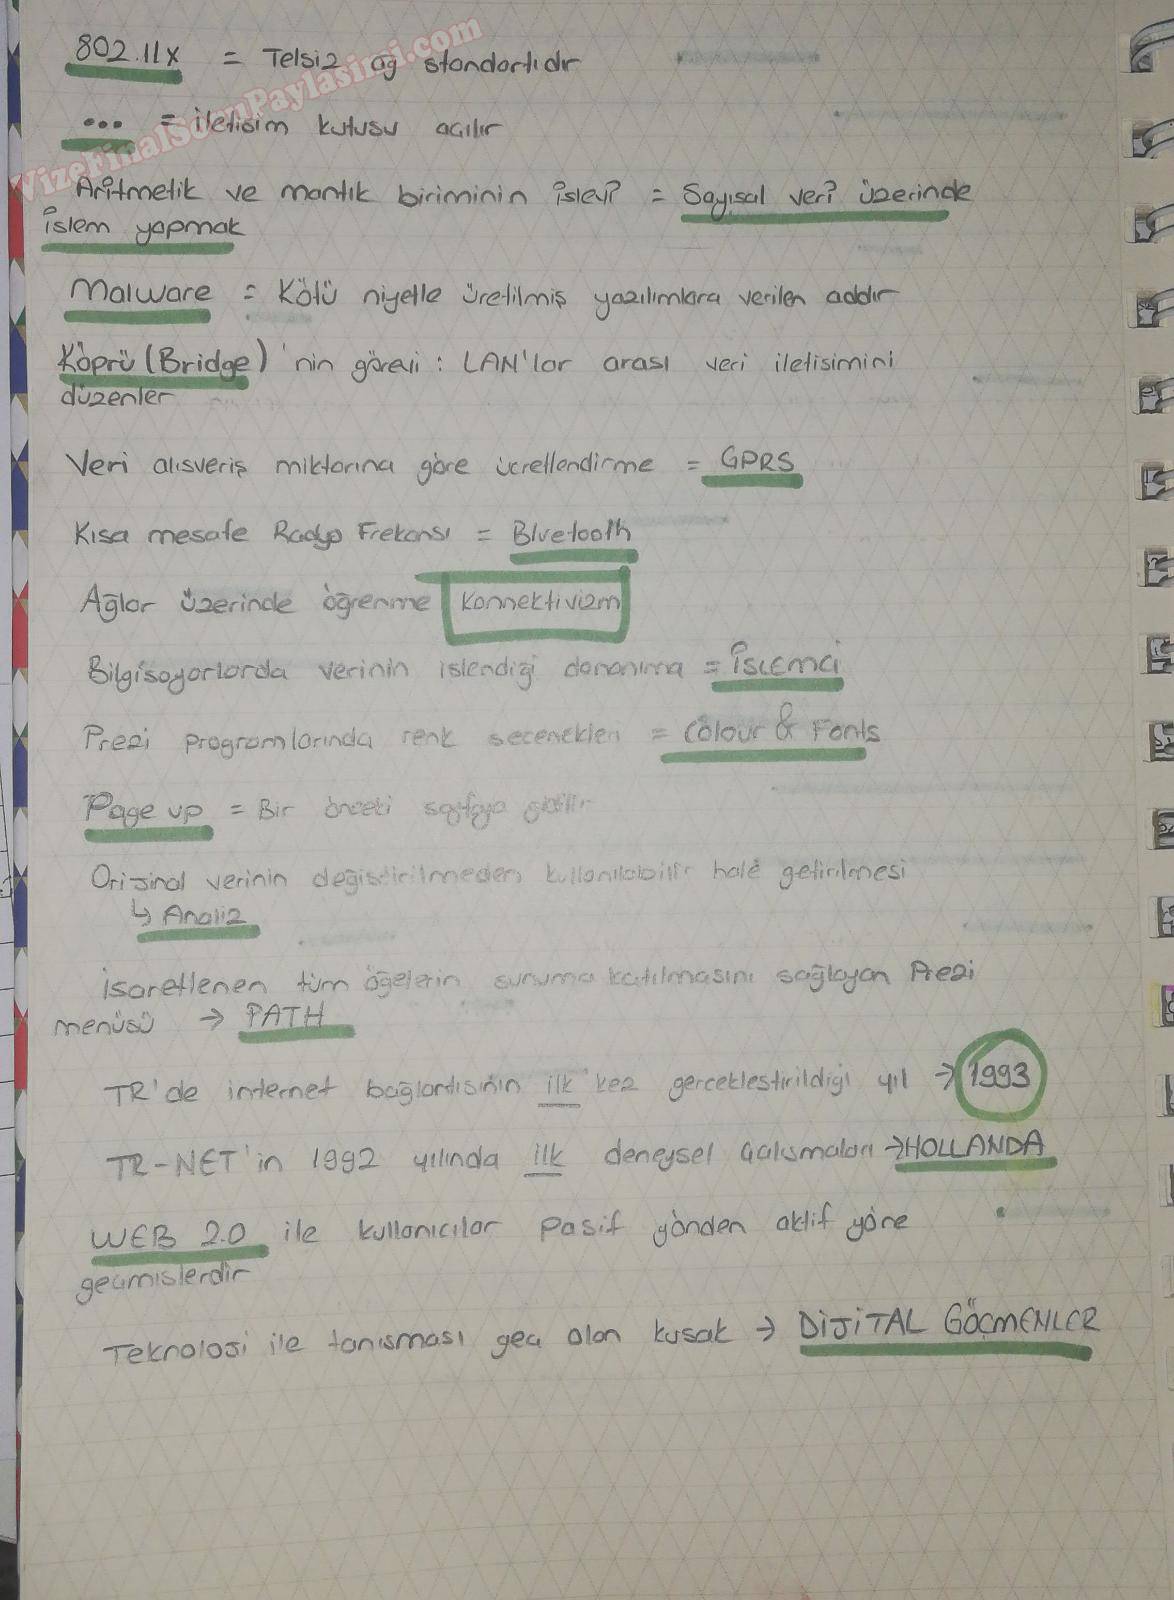 802.11x = Telsiz ağ standartıdır
... = iletisim kutusu acılır
Aritmetik ve mantık biriminin isleyi = Sayısal veri üzerinde
islem yapmak
Malware = Kötü niyetle üretilmiş yazılımlara verilen addır
Köprü (Bridge)'nin görevi : LAN'lar arası veri iletisimini
düzenler
Veri alısveriş miktarına göre ücretlendirme = GPRS
Kısa mesafe Radyo Frekansı = Bluetooth
Ağlar üzerinde öğrenme Konnektivizm
Bilgisayarlarda verinin islendiği donanıma = İSLEMCİ
Prezi programlarında renk secenekleri = Colour & Fonts
Page up = Bir önceki sayfaya gidilir
Orijinal verinin değistirilmeden kullanılabilir hale getirilmesi
↳ Analiz
İsaretlenen tüm öğelerin sunuma katılmasını sağlayan Prezi
menüsü → PATH
TR'de internet bağlantısının ilk kez gerceklestirildiği yıl → 1993
TR-NET'in 1992 yılında ilk deneysel çalısmaları → HOLLANDA
WEB 2.0 ile kullanıcılar pasif yönden aktif yöne
geçmislerdir
Teknoloji ile tanısması geç olan kusak → DİJİTAL GÖÇMENLER
VizeFinalSoruPaylasimi.com